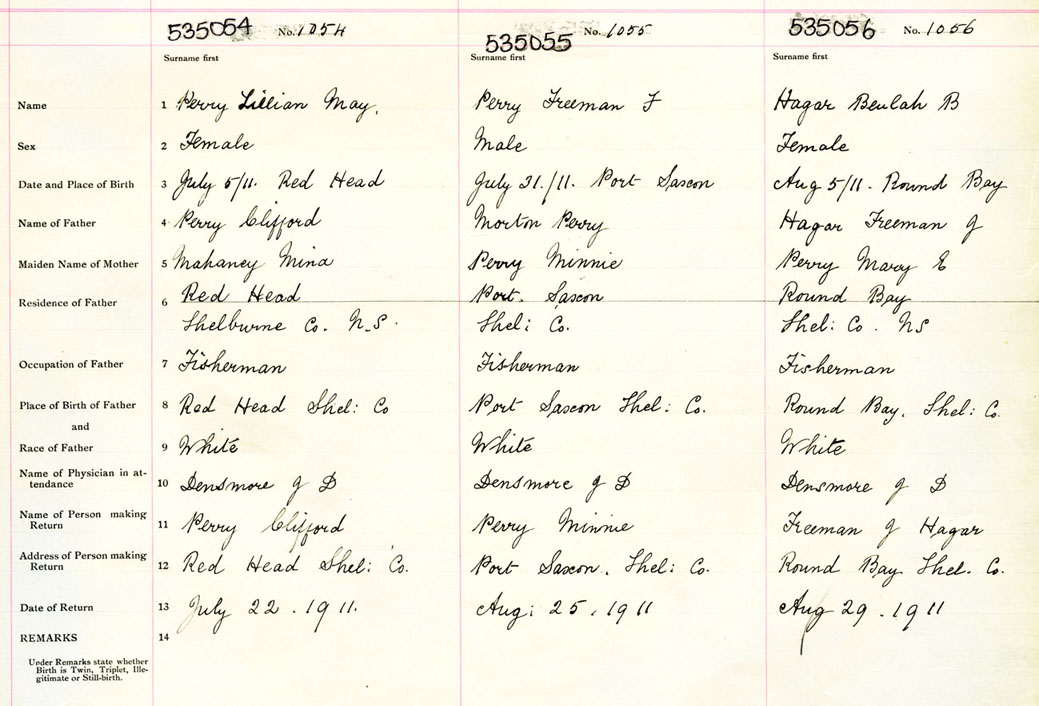 535054 No. 1054 535055 No. 1055 535056 No. 1056
Surname first Surname first Surname first
Name 1 Perry Lillian May. Perry Freeman F Hagar Beulah B
Sex 2 Female Male Female
Date and Place of Birth 3 July 5/11. Red Head July 31./11. Port Saxon Aug 5/11. Round Bay
Name of Father 4 Perry Clifford Morton Perry Hagar Freeman J
Maiden Name of Mother 5 Mahaney Mina Perry Minnie Perry Mary E
Residence of Father 6 Red Head Port. Saxon Round Bay
Shelburne Co. N.S. Shel: Co. Shel: Co. NS
Occupation of Father 7 Fisherman Fisherman Fisherman
Place of Birth of Father 8 Red Head Shel: Co Port Saxon Shel: Co. Round Bay. Shel: Co.
and
Race of Father 9 White White White
Name of Physician in at-
tendance 10 Densmore J D Densmore J D Densmore J D
Name of Person making
Return 11 Perry Clifford Perry Minnie Freeman J Hagar
Address of Person making
Return 12 Red Head Shel: Co. Port Saxon. Shel: Co. Round Bay Shel. Co.
Date of Return 13 July 22. 1911. Aug: 25. 1911 Aug 29. 1911
REMARKS 14
Under Remarks state whether
Birth is Twin, Triplet, Ille-
gitimate or Still-birth.